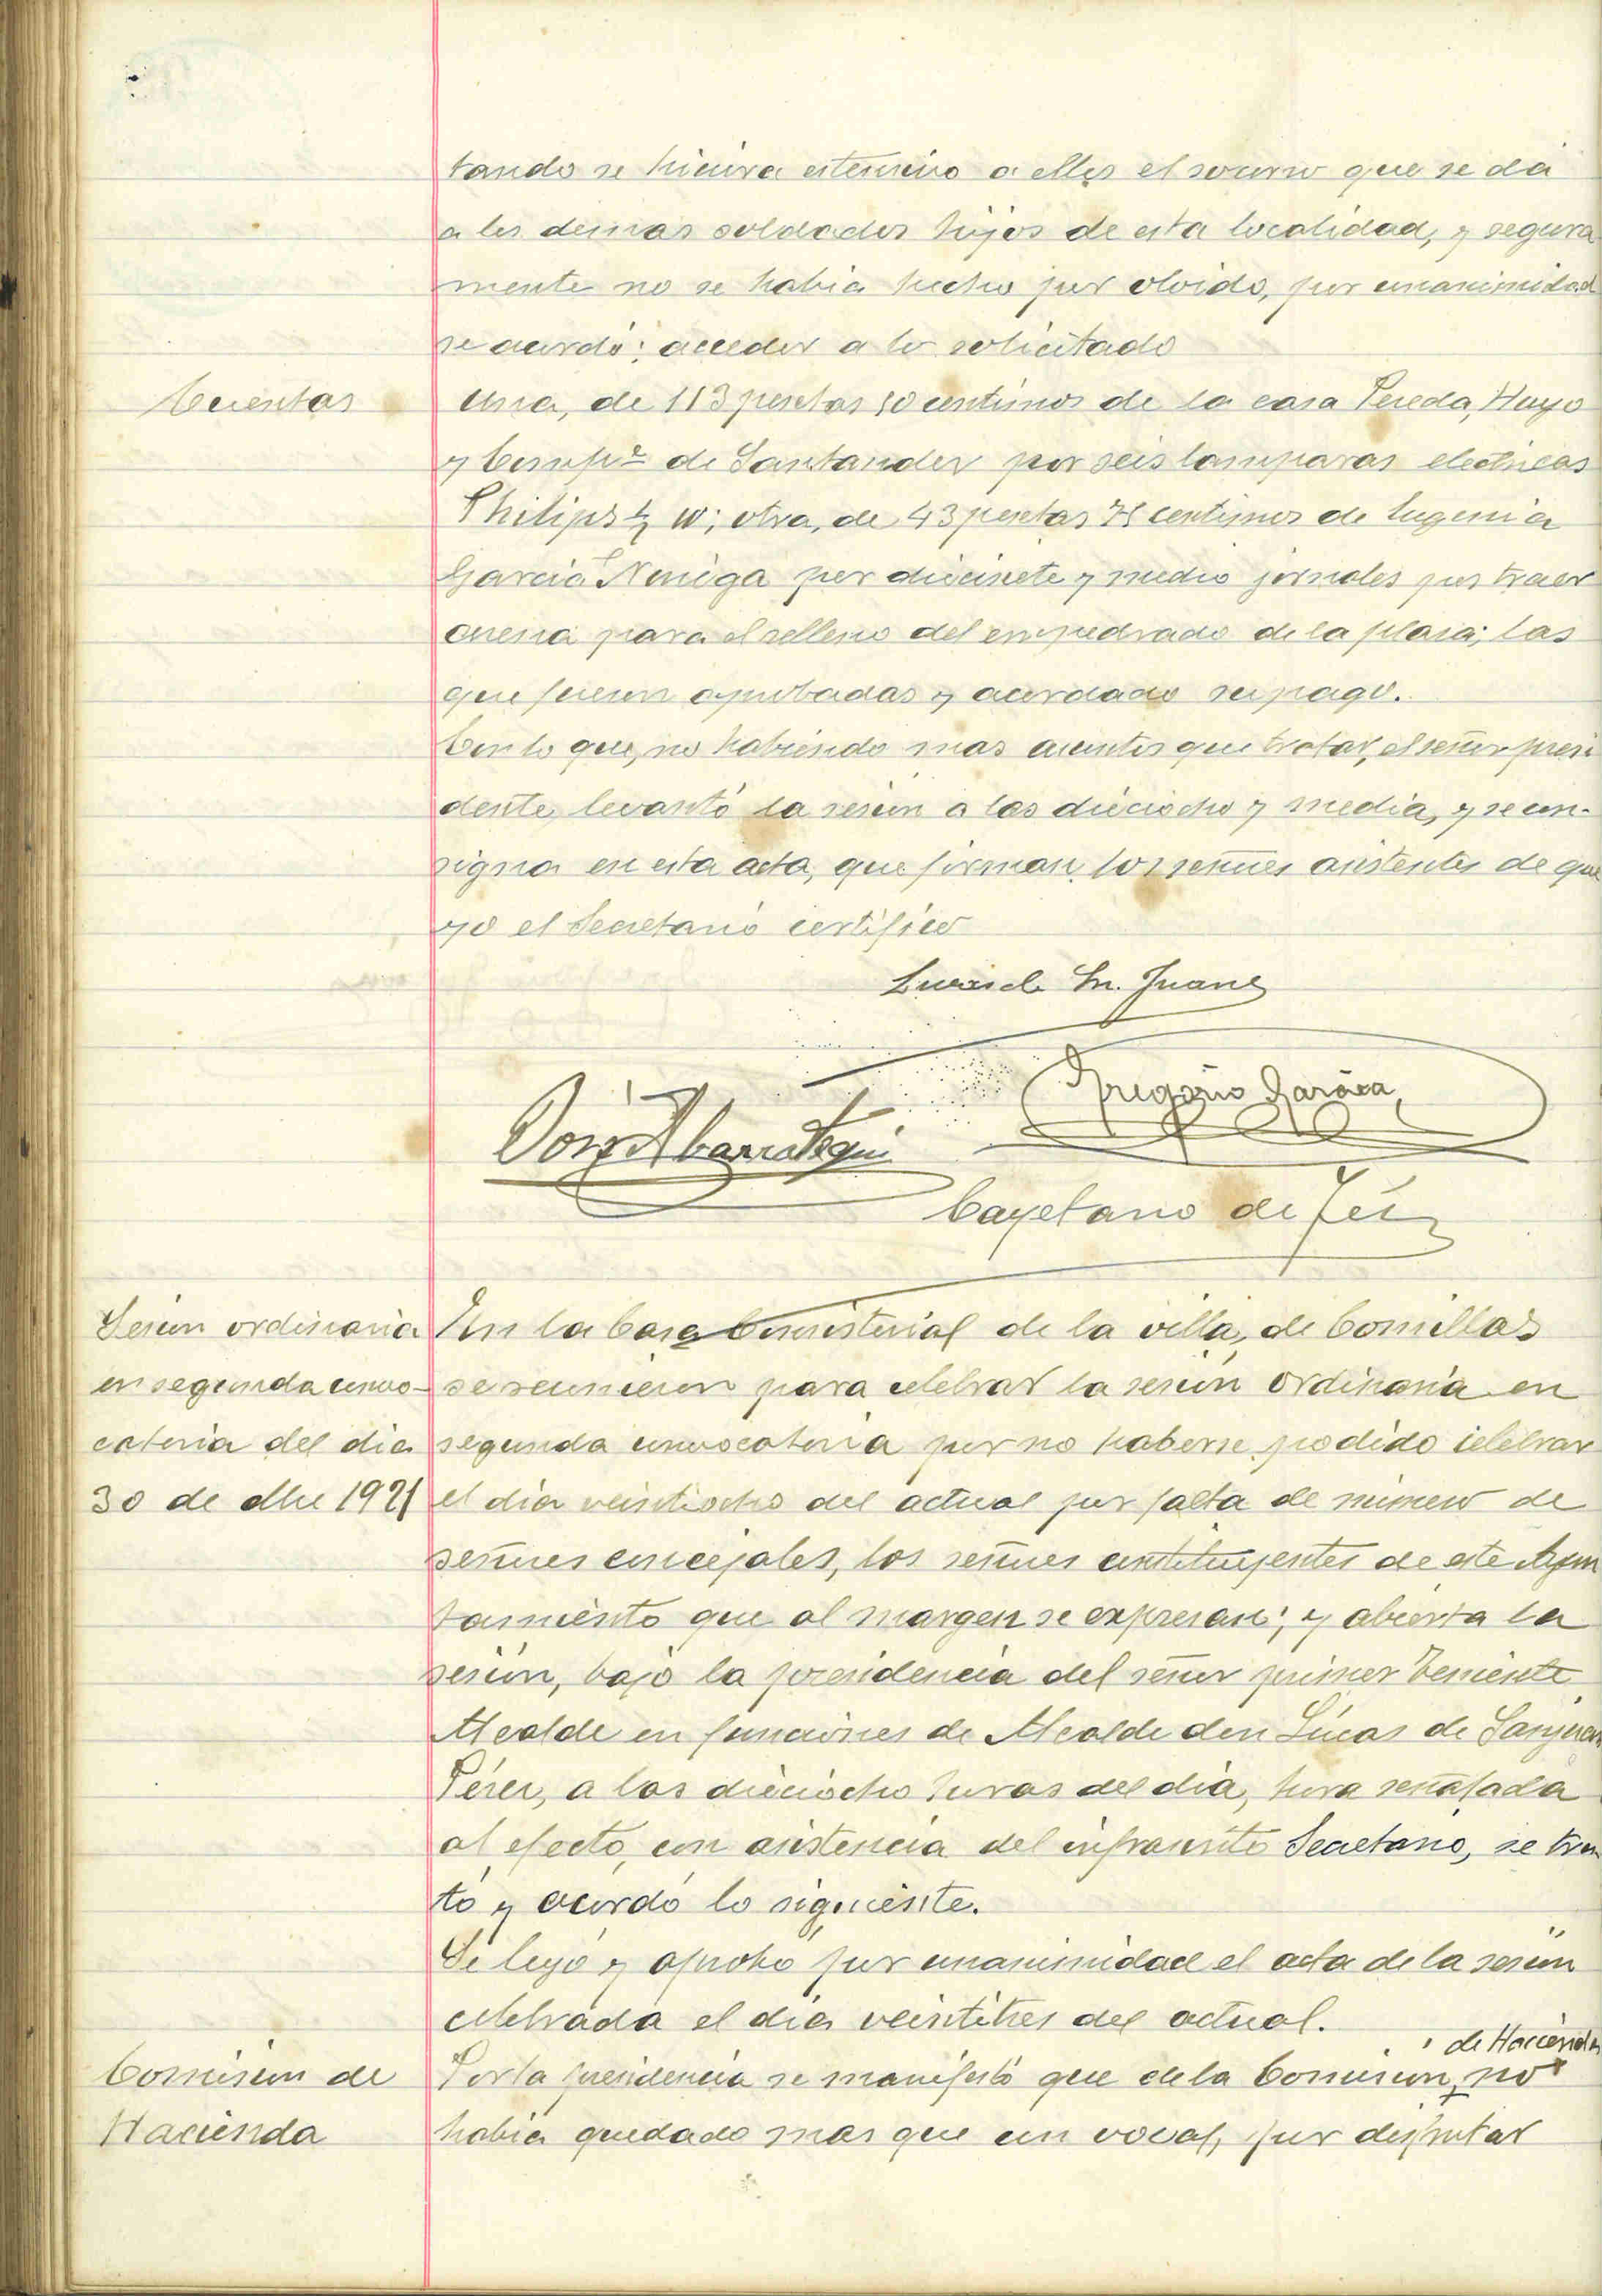 tando se hiciera estensivo a ellos el socorro que se dá
a los demas soldados hijos de esta localidad, y segura
mente no se habia hecho por olvido, por unanimidad
se acordó: acceder a lo solicitado
Cuentas
Una, de 113 pesetas 10 centimos de la casa Pereda, Hugo
y Compª de Santander por seis lamparas electricas
Philips; otra, de 43 pesetas centimos de Eugenia
Garcia Noriega por diecisiete y medio jornales por traer
arena para el relleno del empedrado de la plaza; las
que fueron aprobadas y acordado su pago.
Con lo que, no habiendo mas asuntos que tratar, el señor presi
dente, levantó la sesion a las dieciocho y media, y se con-
signa en esta acta, que firman los señores asistentes de que
yo el Secretario certifico
Lucas de Sn. Juan
Gregorio Garcia
Abarrategui
Cayetano de
Sesion ordinaria
en segunda convo-
catoria del dia
30 de dbre 1921
En la Casa Consistorial de la villa, de Comillas
se reunieron para celebrar la sesión ordinaria en
segunda convocatoria por no haberse podido celebrar
el dia veintiocho del actual por falta de número de
señores concejales, los señores constituyentes de este Ayun
tamiento que al margen se expresan; y abierta la
sesion, bajo la presidencia del señor primer Teniente
Alcalde en funciones de Alcalde don Lúcas de Sanjuan
Pérez, a las dieciocho horas del dia, hora señalada
al efecto, con asistencia del infrascrito Secretario, se tra
tó y acordó lo siguiente.
Se leyó y aprobó por unanimidad el acta de la sesion
celebrada el dia veintitres del actual.
Comision de
Hacienda
de Hacienda
Por la presidencia se manifestó que de la Comision, no
habia quedado mas que un vocal, por disfrutar